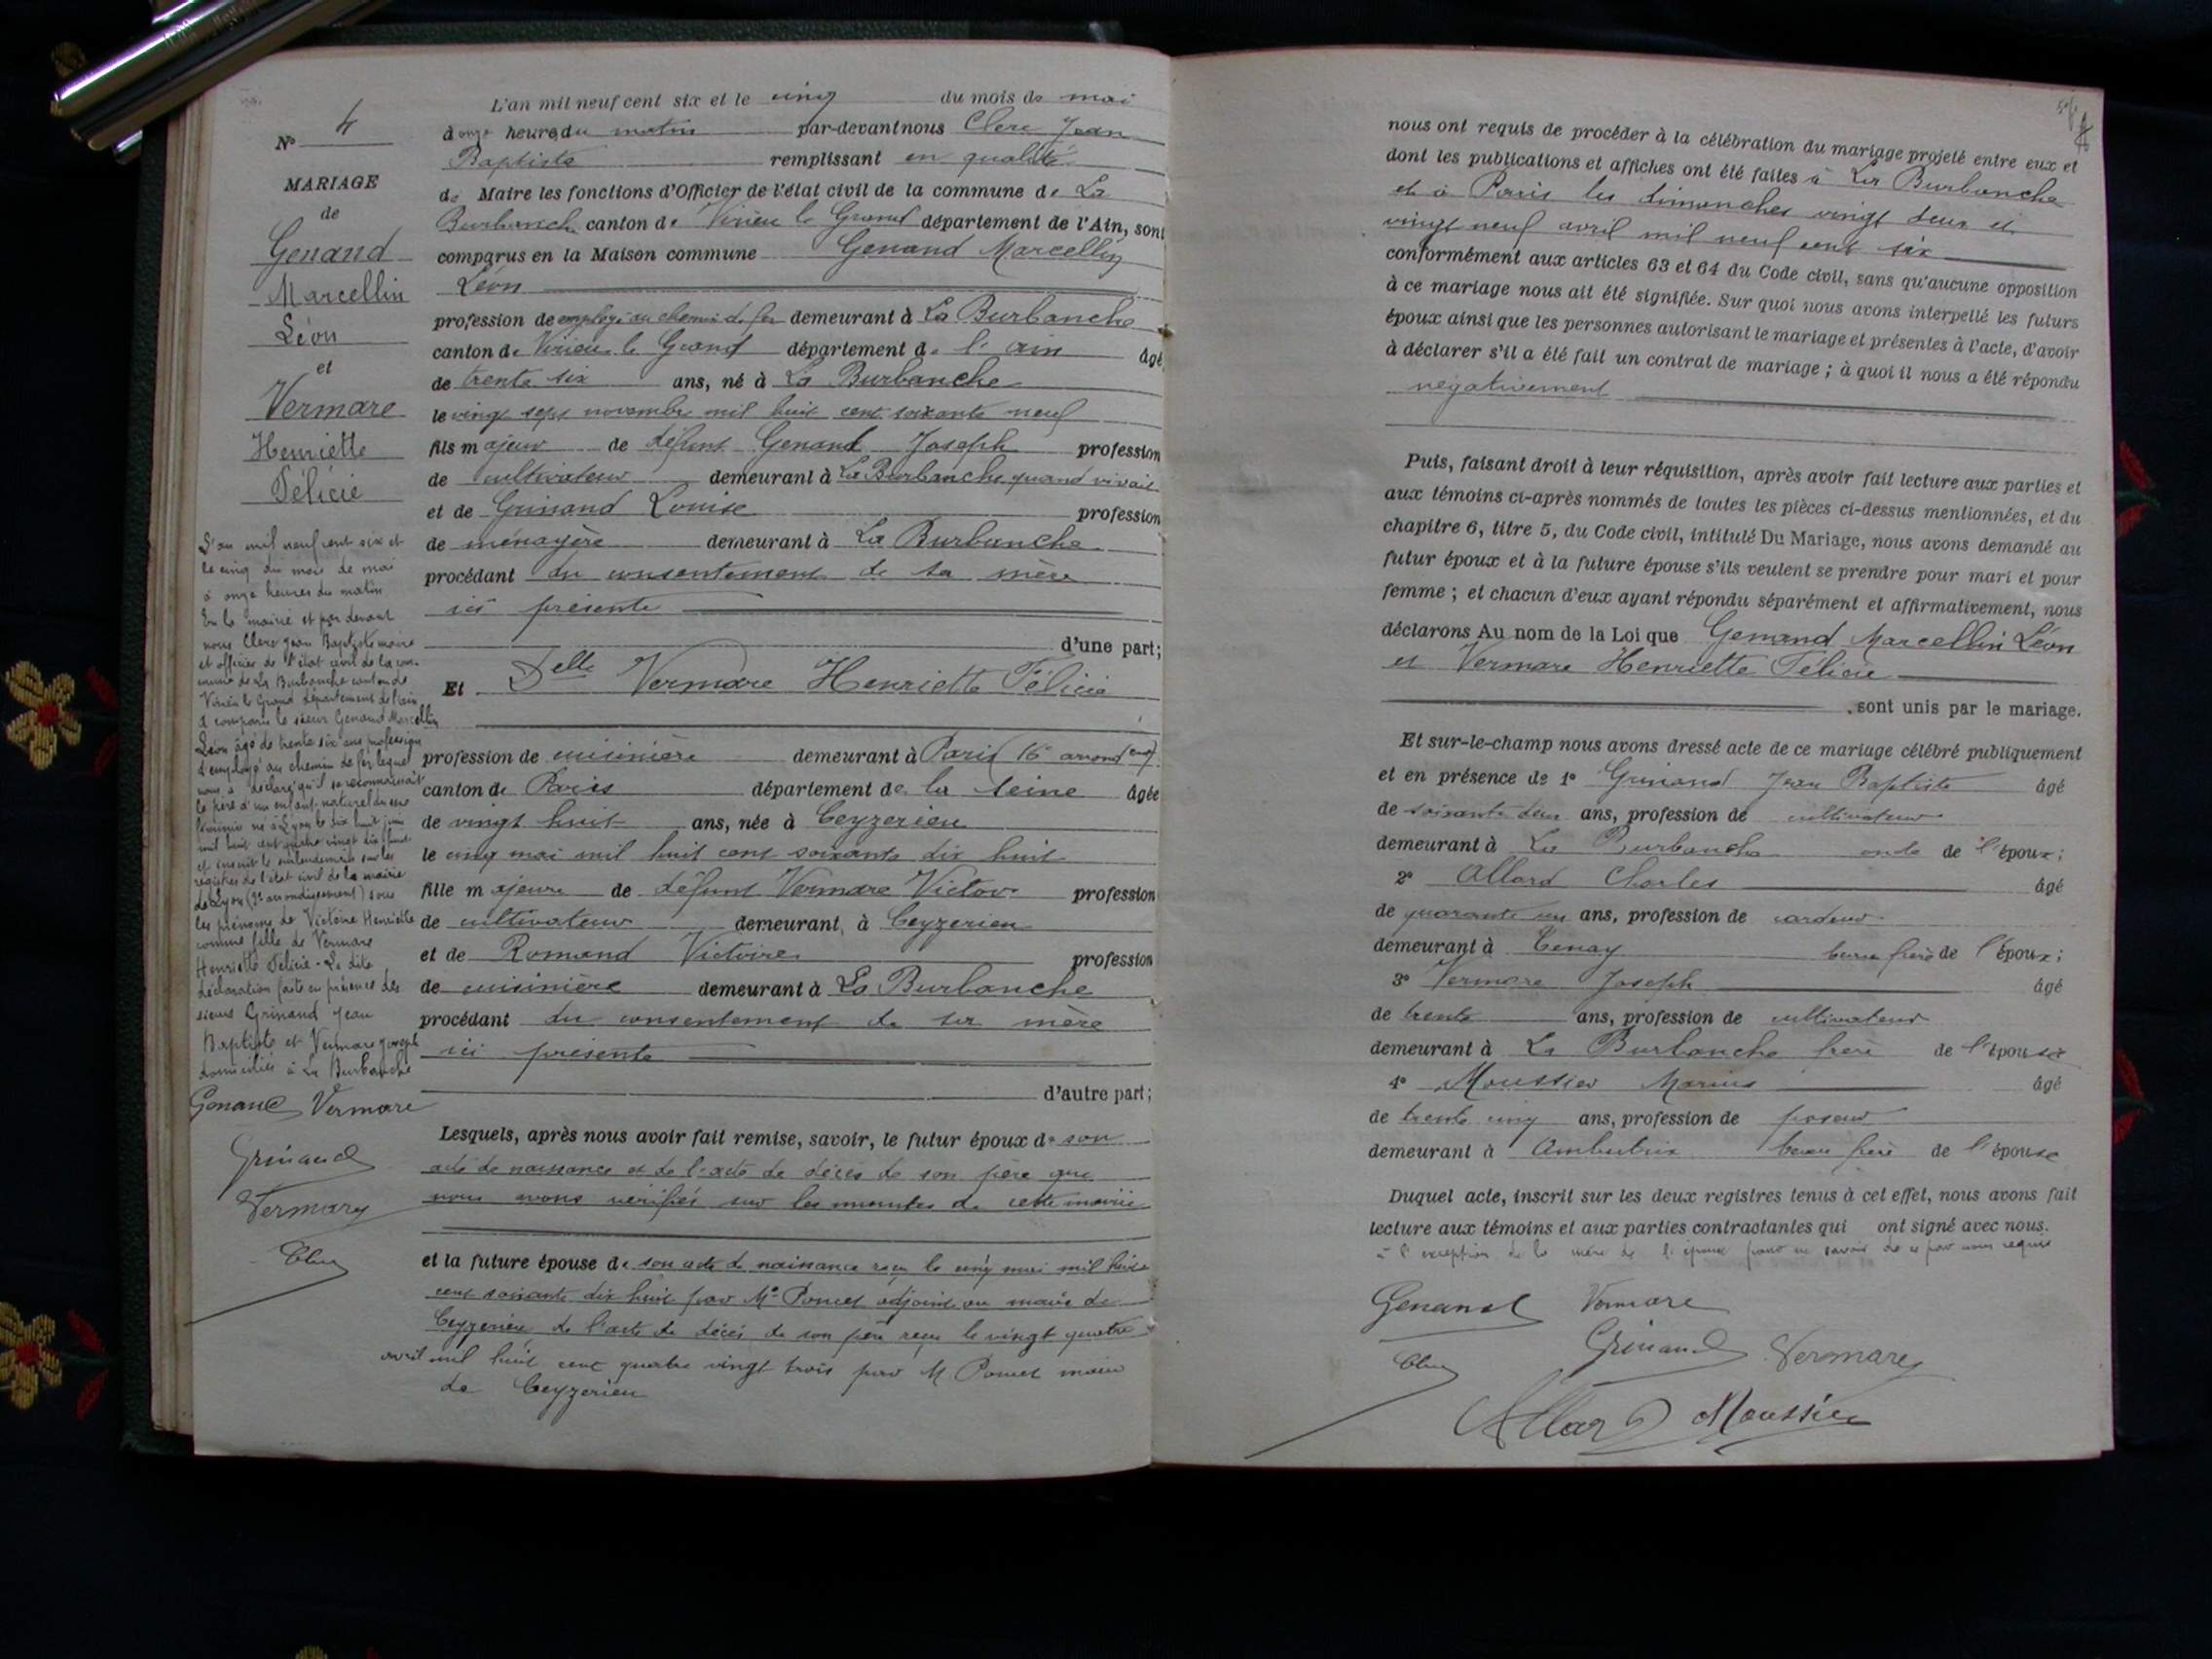 N° 4
MARIAGE
de
Genand
Marcellin
Léon
et
Vermare
Henriette
Félicie
L'an mil neuf cent six et
le cinq du mois de mai
à onze heures du matin
En la mairie et par devant
nous Clerc Jean Baptiste maire
et officier de l'état civil de la com-
mune de La Burbanche canton de
Virieu le Grand département de l'Ain
a comparu le sieur Genand Marcellin
Léon âgé de trente six ans profession
d'employé au chemin de fer lequel
nous a déclaré qu'il se reconnaissait
le père d'un enfant naturel du sexe
féminin né à Lyon le dix huit juin
mil huit cent quatre vingt dix
et inscrit le surlendemain sur les
registres de l'état civil de la mairie
de Lyon (3e arrondissement) sous
les prénoms de Victoire Henriette
comme fille de Vermare
Henriette Félicie - La dite
déclaration faite en présence des
sieurs Grinand Jean
Baptiste et Vermare Joseph
domiciliés à La Burbanche
Genand Vermare
Grinand
Vermare
Clerc
L'an mil neuf cent six et le cinq du mois de mai
à onze heures du matin par-devant nous Clerc Jean
Baptiste remplissant en qualité
de Maire les fonctions d'Officier de l'état civil de la commune de La
Burbanche canton de Virieu le Grand département de l'Ain, sont
comparus en la Maison commune Genand Marcellin
Léon
profession de employé au chemin de fer demeurant à La Burbanche
canton de Virieu le Grand département de l'ain âgé
de trente six ans, né à La Burbanche
le vingt sept novembre mil huit cent soixante neuf
fils majeur de défunt Genand Joseph profession
de cultivateur demeurant à La Burbanche quand vivait
et de Grinand Louise profession
de ménagère demeurant à La Burbanche
procédant du consentement de sa mère
ici présente
d'une part;
Et Delle Vermare Henriette Félicie
profession de cuisinière demeurant à Paris 16e arrond
canton de Paris département de la Seine âgée
de vingt huit ans, née à Ceyzerieu
le cinq mai mil huit cent soixante dix huit
fille majeure de défunt Vermare Victor profession
de cultivateur demeurant à Ceyzerieu
et de Romand Victoire profession
de cuisinière demeurant à La Burbanche
procédant du consentement de sa mère
ici présente
d'autre part;
Lesquels, après nous avoir fait remise, savoir, le futur époux de son
acte de naissance et de l'acte de décès de son père que
nous avons vérifiés sur les minutes de cette mairie
et la future épouse de son acte de naissance reçu le cinq mai mil huit
cent soixante dix huit par Mr Poncet adjoint au maire de
Ceyzerieu de l'acte de décès de son père reçu le vingt quatre
avril mil huit cent quatre vingt trois par M Poncet maire
de Ceyzerieu
nous ont requis de procéder à la célébration du mariage projeté entre eux et
dont les publications et affiches ont été faites à La Burbanche
et à Paris les dimanches vingt deux et
vingt neuf avril mil neuf cent six
conformément aux articles 63 et 64 du Code civil, sans qu'aucune opposition
à ce mariage nous ait été signifiée. Sur quoi nous avons interpellé les futurs
époux ainsi que les personnes autorisant le mariage et présentes à l'acte, d'avoir
à déclarer s'il a été fait un contrat de mariage ; à quoi il nous a été répondu
négativement
Puis, faisant droit à leur réquisition, après avoir fait lecture aux parties et
aux témoins ci-après nommés de toutes les pièces ci-dessus mentionnées, et du
chapitre 6, titre 5, du Code civil, intitulé Du Mariage, nous avons demandé au
futur époux et à la future épouse s'ils veulent se prendre pour mari et pour
femme ; et chacun d'eux ayant répondu séparément et affirmativement, nous
déclarons Au nom de la Loi que Genand Marcellin Léon
et Vermare Henriette Félicie
sont unis par le mariage.
Et sur-le-champ nous avons dressé acte de ce mariage célébré publiquement
et en présence de 1° Grinand Jean Baptiste âgé
de soixante deux ans, profession de cultivateur
demeurant à La Burbanche oncle de l'époux;
2° Allard Charles âgé
de quarante un ans, profession de cardeur
demeurant à Tenay beau frère de l'époux;
3° Vermare Joseph âgé
de trente ans, profession de cultivateur
demeurant à La Burbanche frère de l'épouse
4° Moussier Marius âgé
de trente cinq ans, profession de poseur
demeurant à Ambutrix beau frère de l'épouse
Duquel acte, inscrit sur les deux registres tenus à cet effet, nous avons fait
lecture aux témoins et aux parties contractantes qui ont signé avec nous.
à l'exception de la mère de l'époux pour ne savoir de ce par nous requise
Genand Vermare
Grinand Vermare
Clerc
Allard Moussier